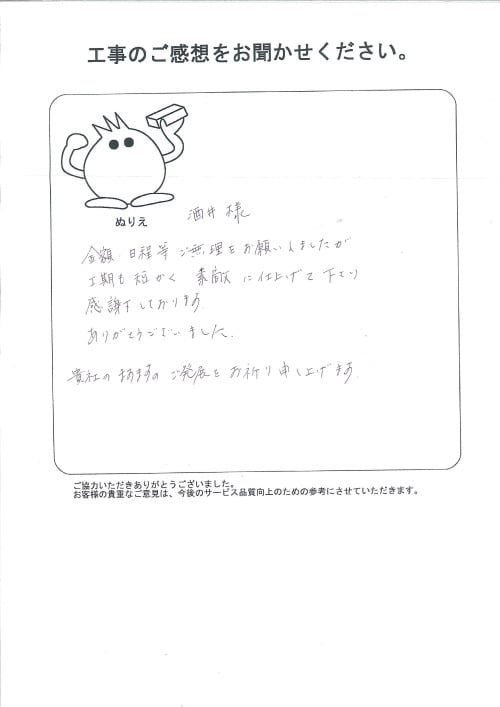 工事のご感想をお聞かせください。
ぬりえ
酒井様
金額、日程等ご無理をお願いしましたが
工期も短かく素敵に仕上げて下さり
感謝しております。
ありがとうございました。
貴社のますますのご発展をお祈り申し上げます。
ご協力いただきありがとうございました。
お客様の貴重なご意見は、今後のサービス品質向上のための参考にさせていただきます。